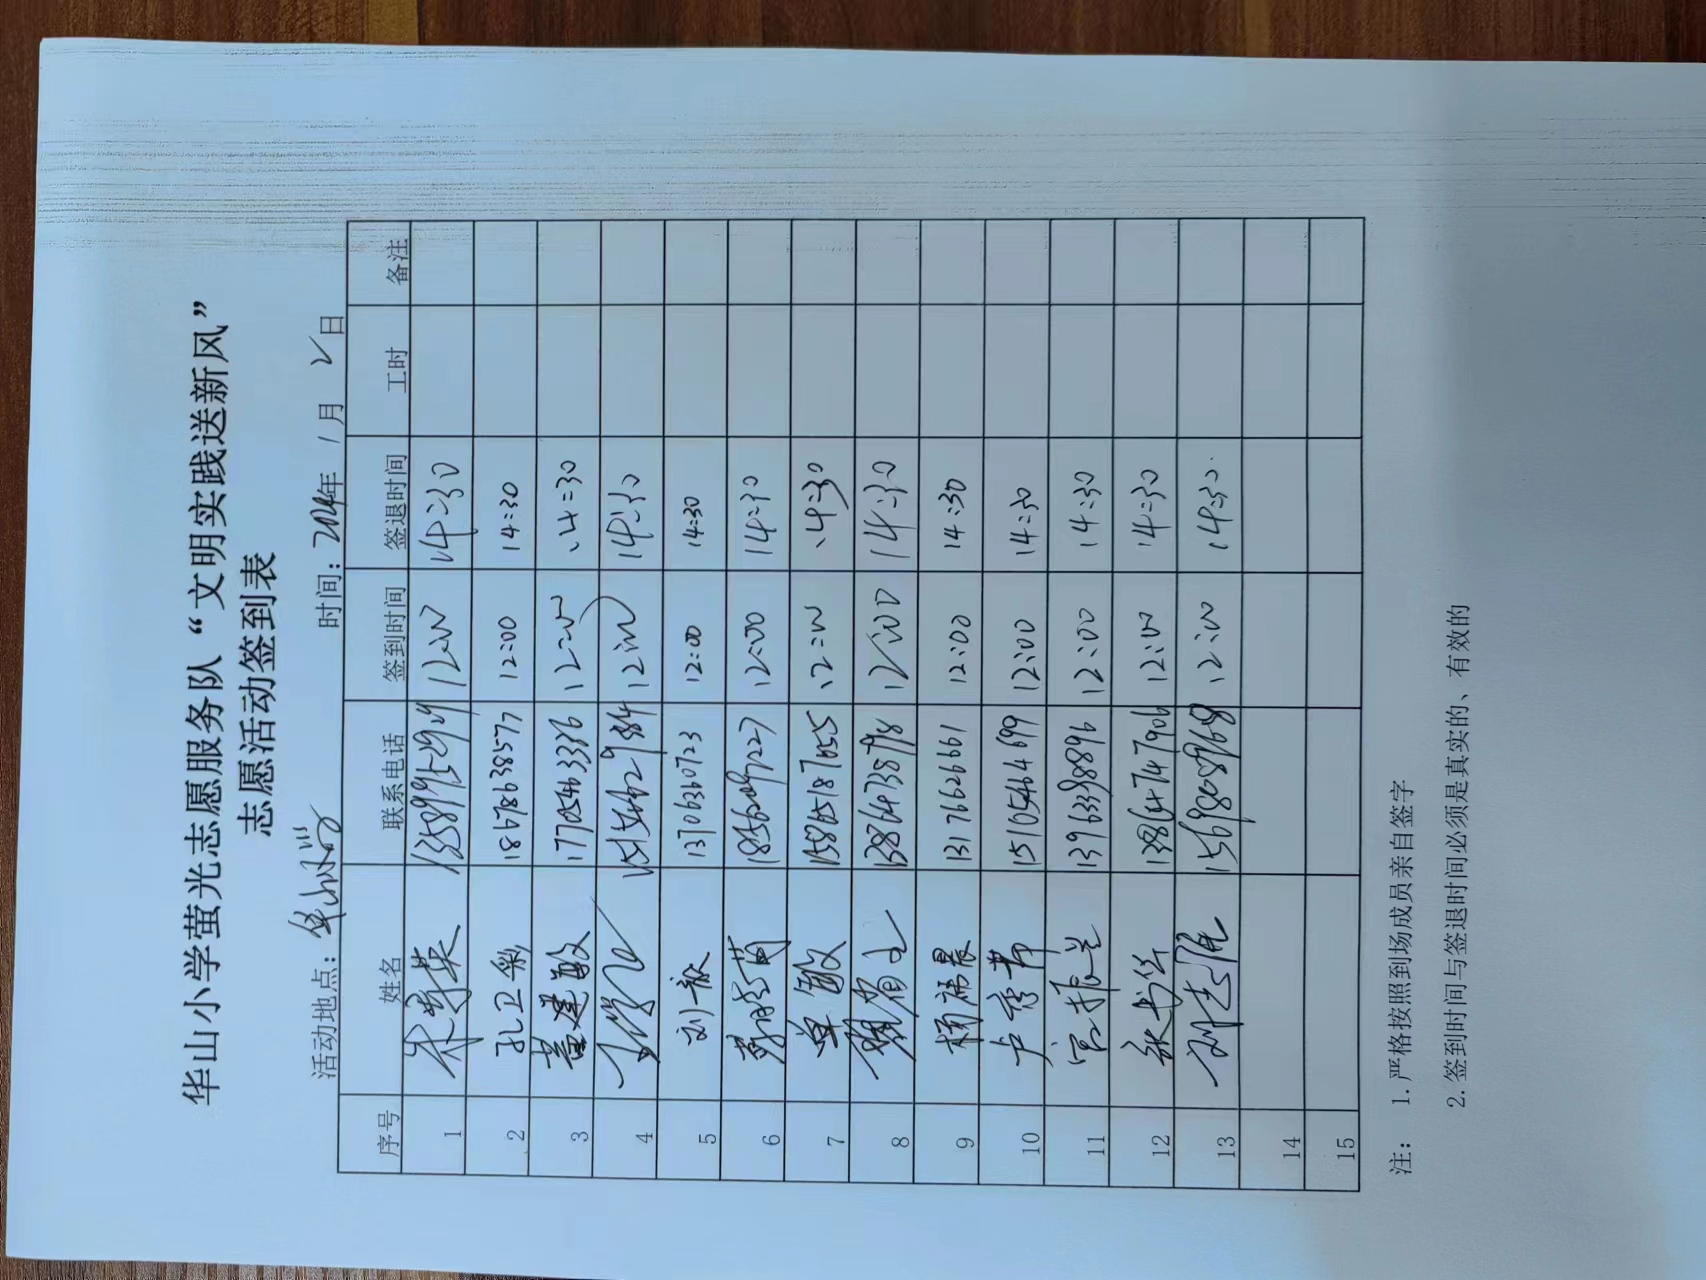 华山小学萤光志愿服务队“文明实践送新风”
志愿活动签到表
活动地点：华山小学 时间：2024年 1 月 2 日
序号 姓名 联系电话 签到时间 签退时间 工时 备注
1 12:00 14:30
2 孔卫彩 18678638577 12:00 14:30
3 董建敏 17705463336 12:00 14:30
4 12:00 14:30
5 刘敏 13706360723 12:00 14:30
6 12:00 14:30
7 单敏 15865187055 12:00 14:30
8 13864738798 12:00 14:30
9 杨席晨 13176626661 12:00 14:30
10 卢秀華 15105464699 12:00 14:30
11 宫振兰 13963398896 12:00 14:30
12 张书华 13864747906 12:00 14:30
13 15698089768 12:00 14:30
14
15
注： 1. 严格按照到场成员亲自签字
2. 签到时间与签退时间必须是真实的、有效的